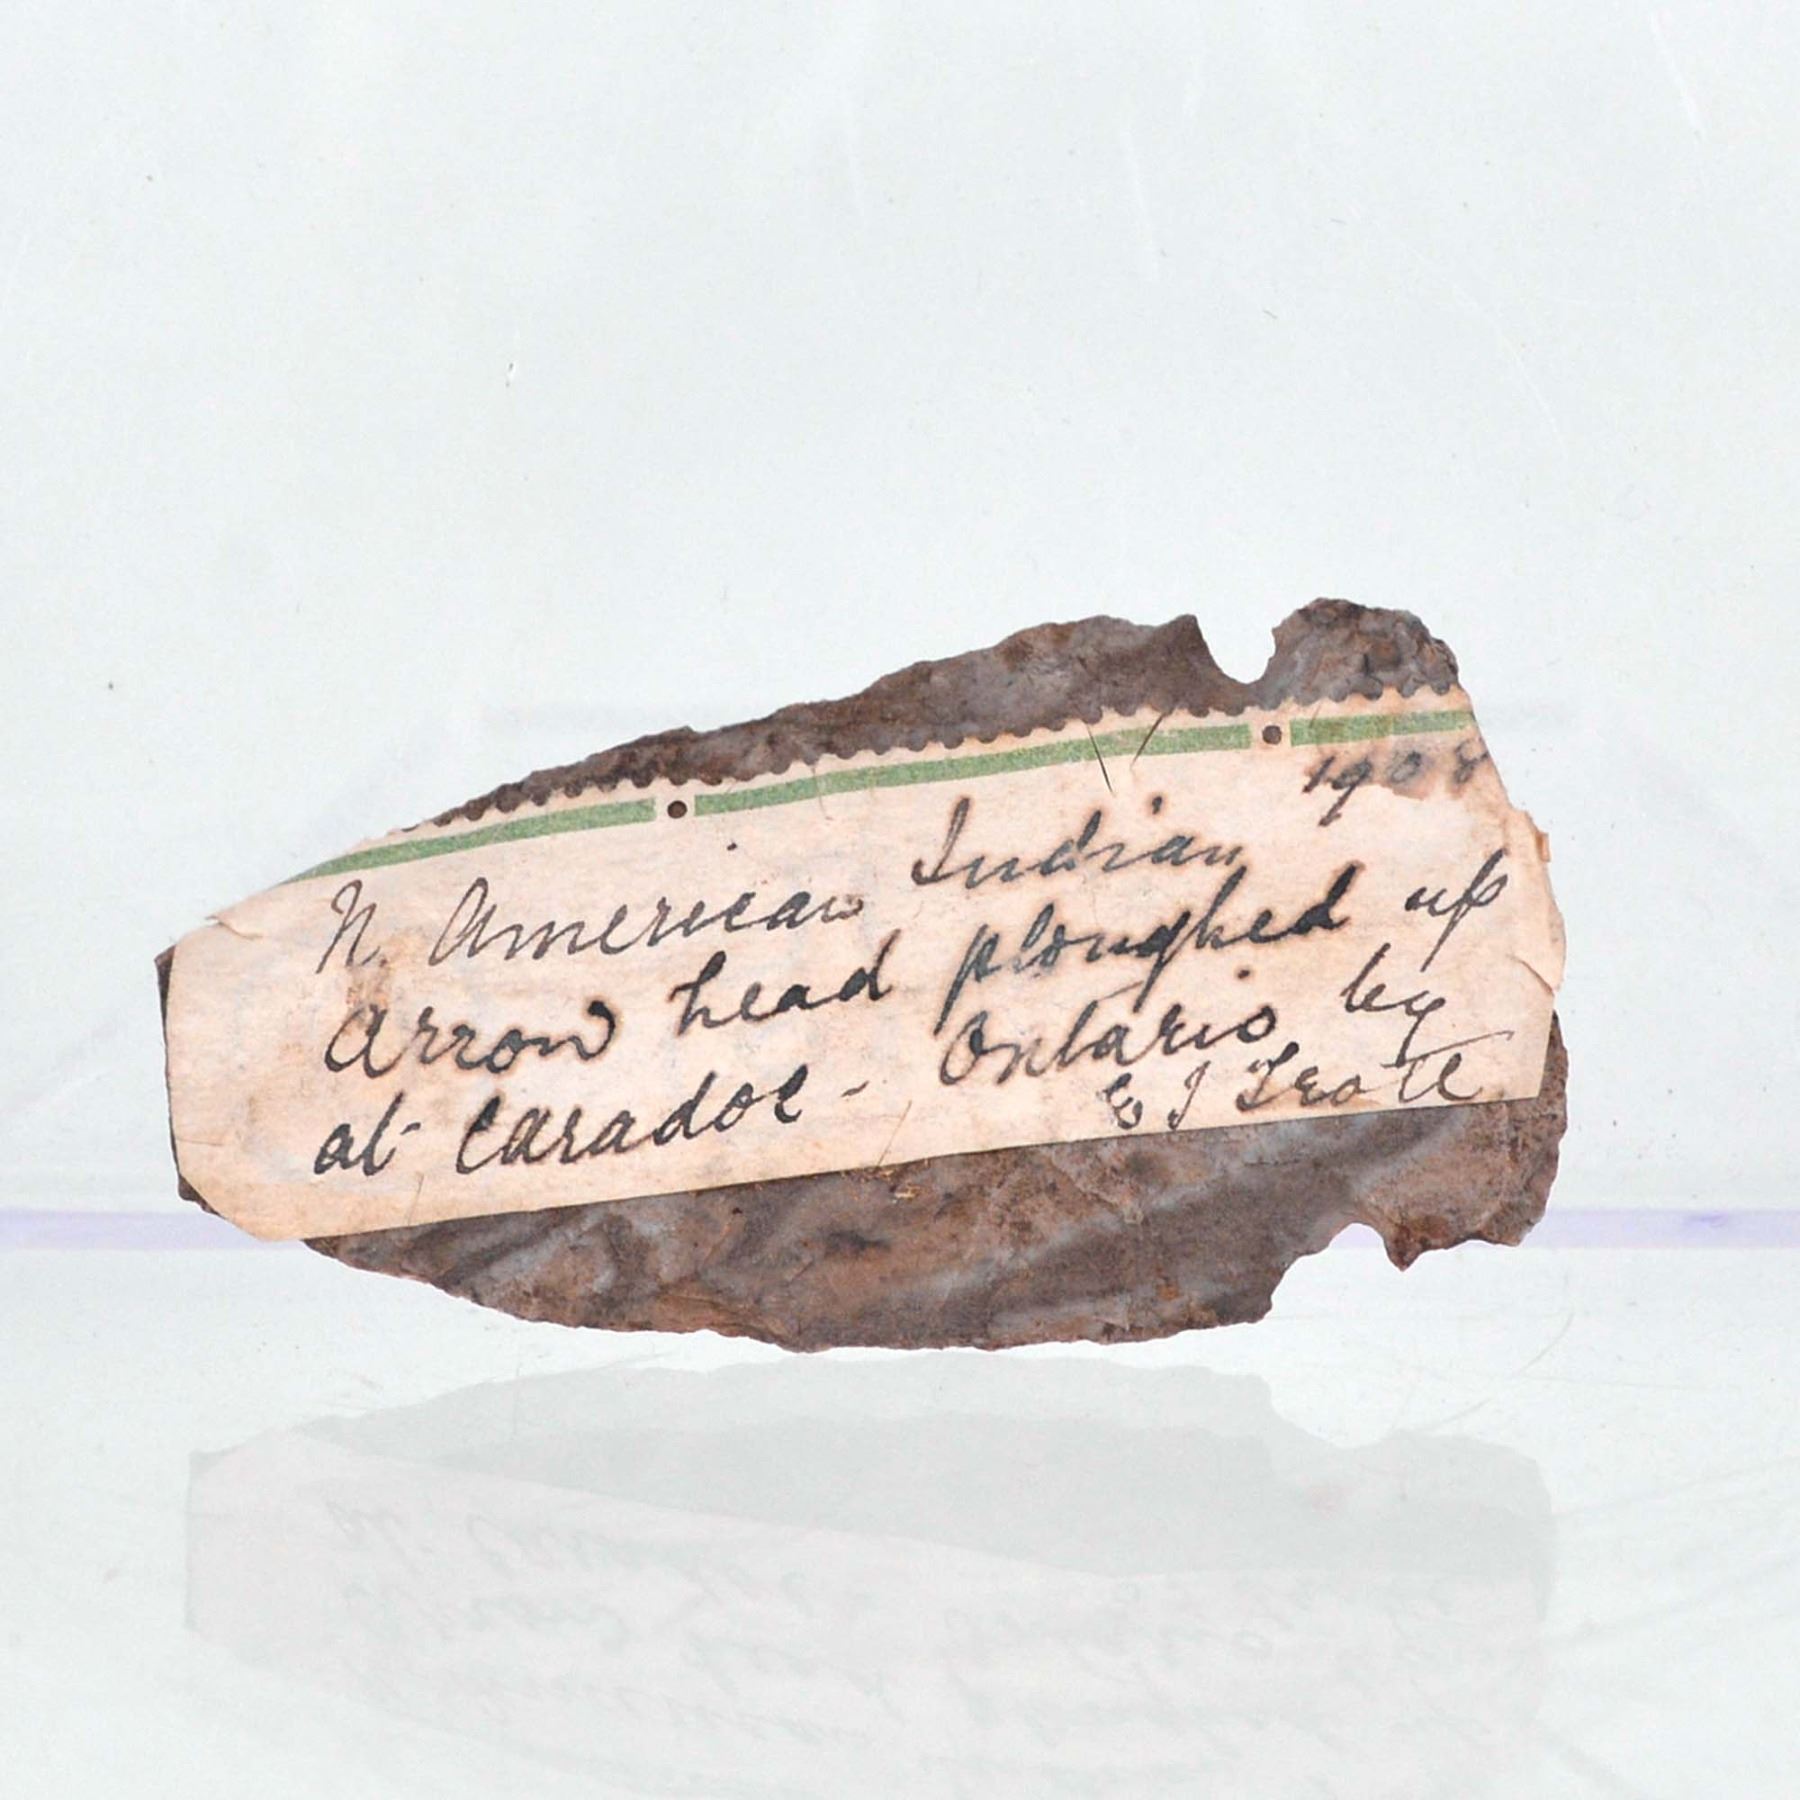 1908
N. American Indian
Arrow head ploughed up
at Caradoc - Ontario by
E J Trott